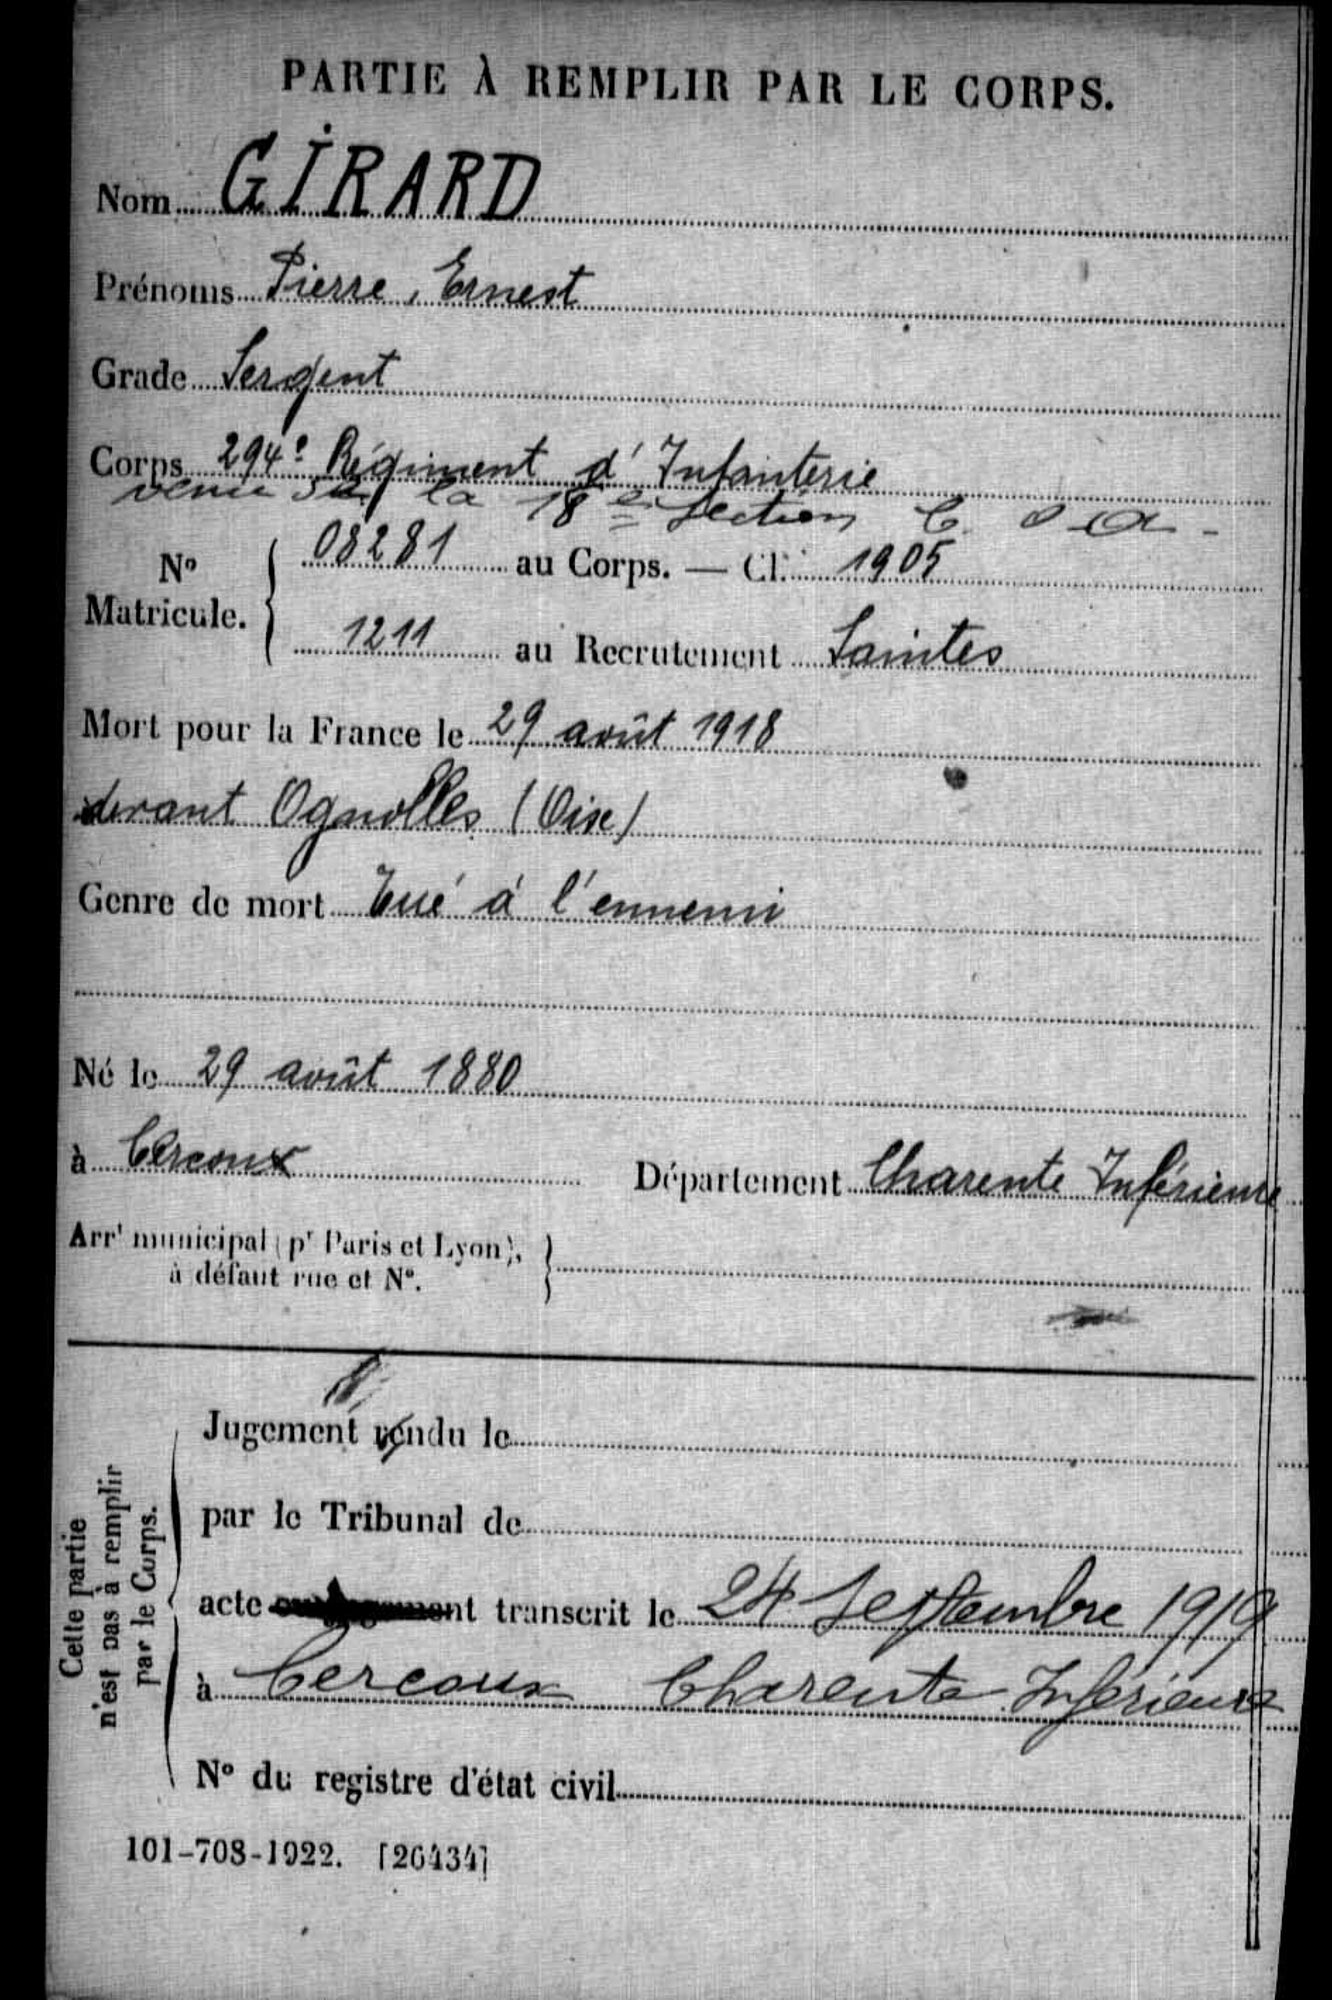 PARTIE À REMPLIR PAR LE CORPS.
Nom GIRARD
Prénoms Pierre, Ernest
Grade Sergent
Corps 294e Régiment d'Infanterie
venu de la 18e Section C. O A -
No Matricule. { 08281 au Corps. — Cl. 1905
1211 au Recrutement Saintes
Mort pour la France le 29 août 1918
devant Ognolles (Oise)
Genre de mort Tué à l'ennemi
Né le 29 août 1880
à Cercoux Département Charente Inférieure
Arrt municipal (pr Paris et Lyon),
à défaut rue et No.
Cette partie n'est pas à remplir par le Corps.
Jugement rendu le
par le Tribunal de
acte ou jugement transcrit le 24 Septembre 1919
à Cercoux Charente Inférieure
No du registre d'état civil
101-708-1922. [26434]